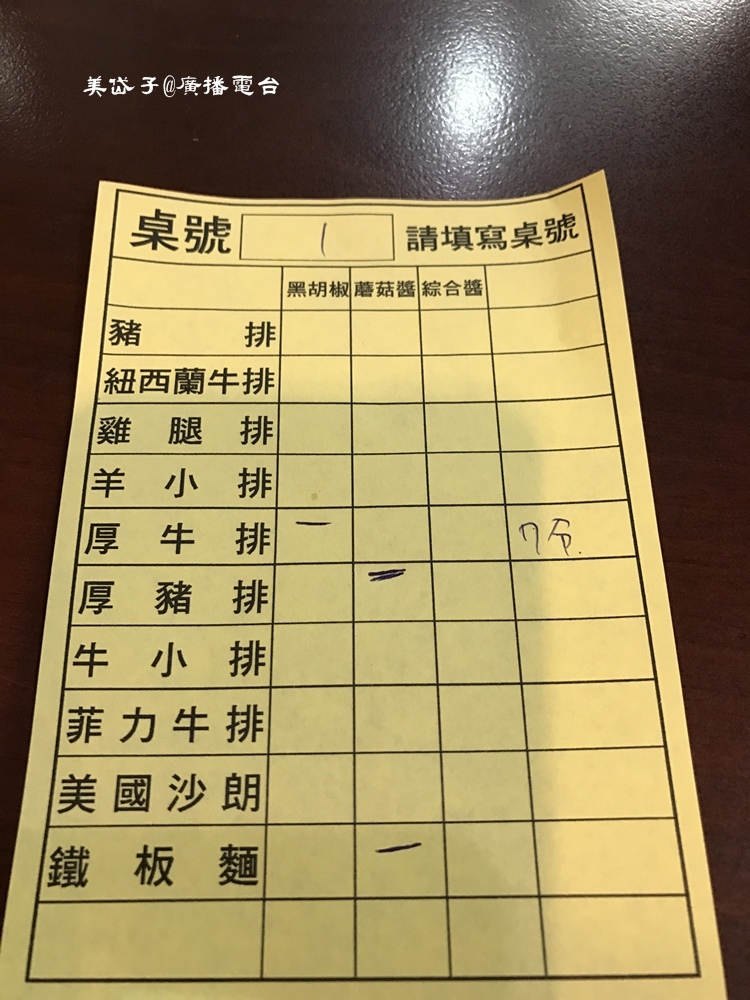 美岱子@廣播電台
桌號 1 請填寫桌號
黑胡椒 蘑菇醬 綜合醬
豬排
紐西蘭牛排
雞腿排
羊小排
厚牛排 一 7分
厚豬排 二
牛小排
菲力牛排
美國沙朗
鐵板麵 一